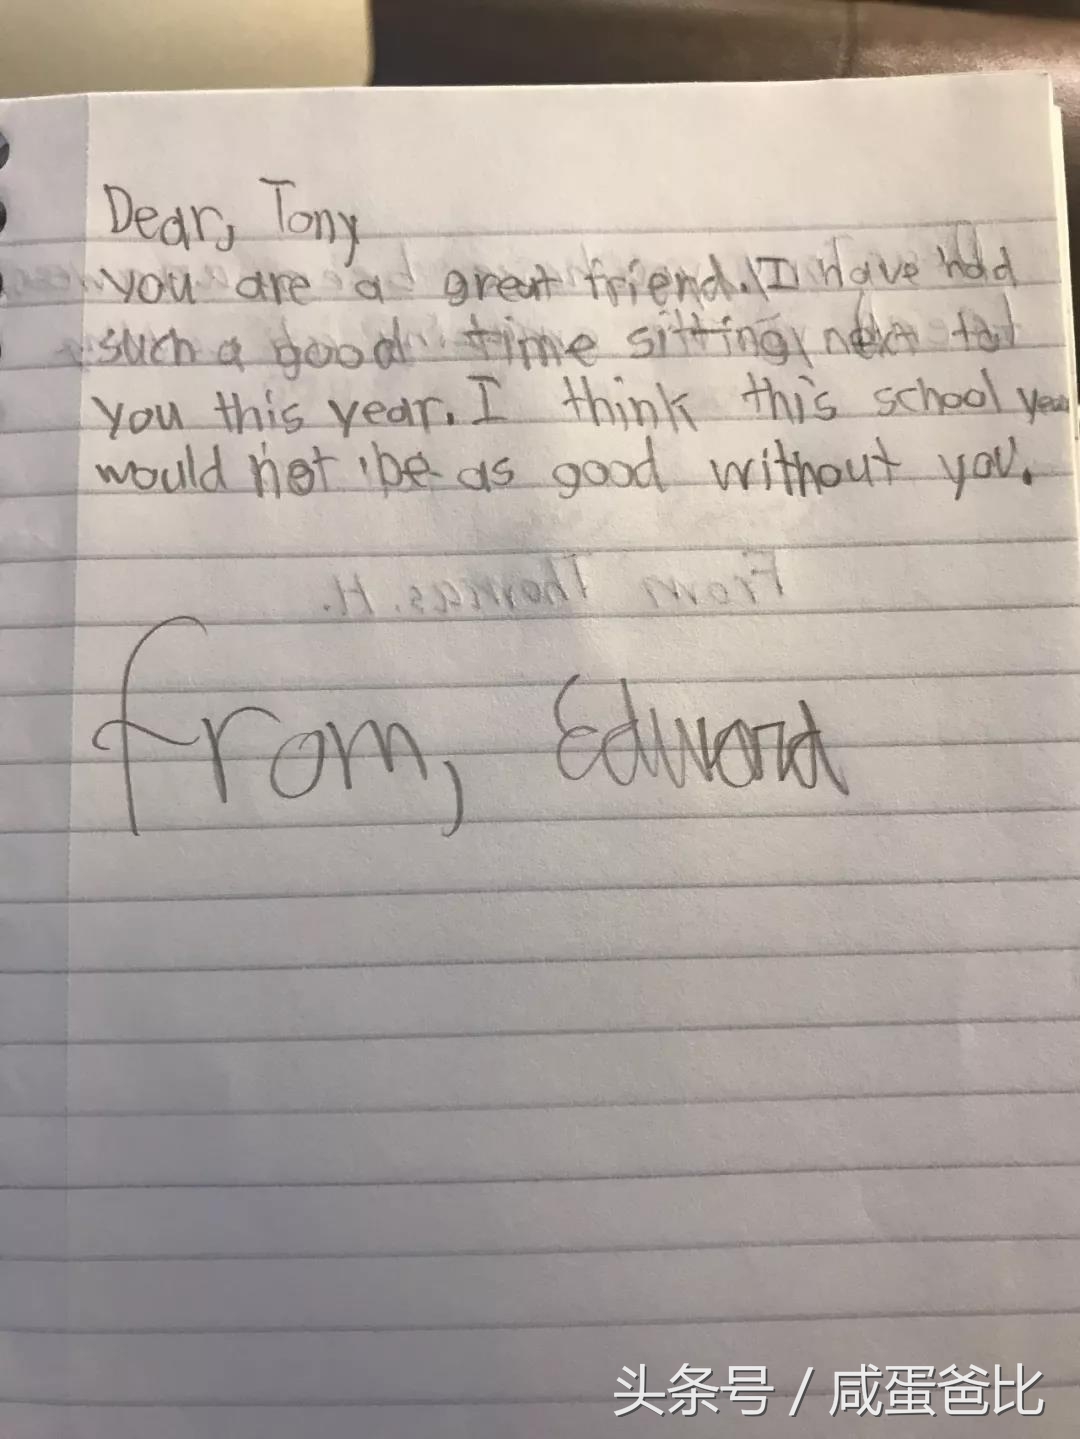 Dear, Tony
you are a great friend. I have had
such a good time sitting next to
you this year. I think this school year
would not be as good without you.
From Thomas. H.
From, Edward
头条号 / 咸蛋爸比